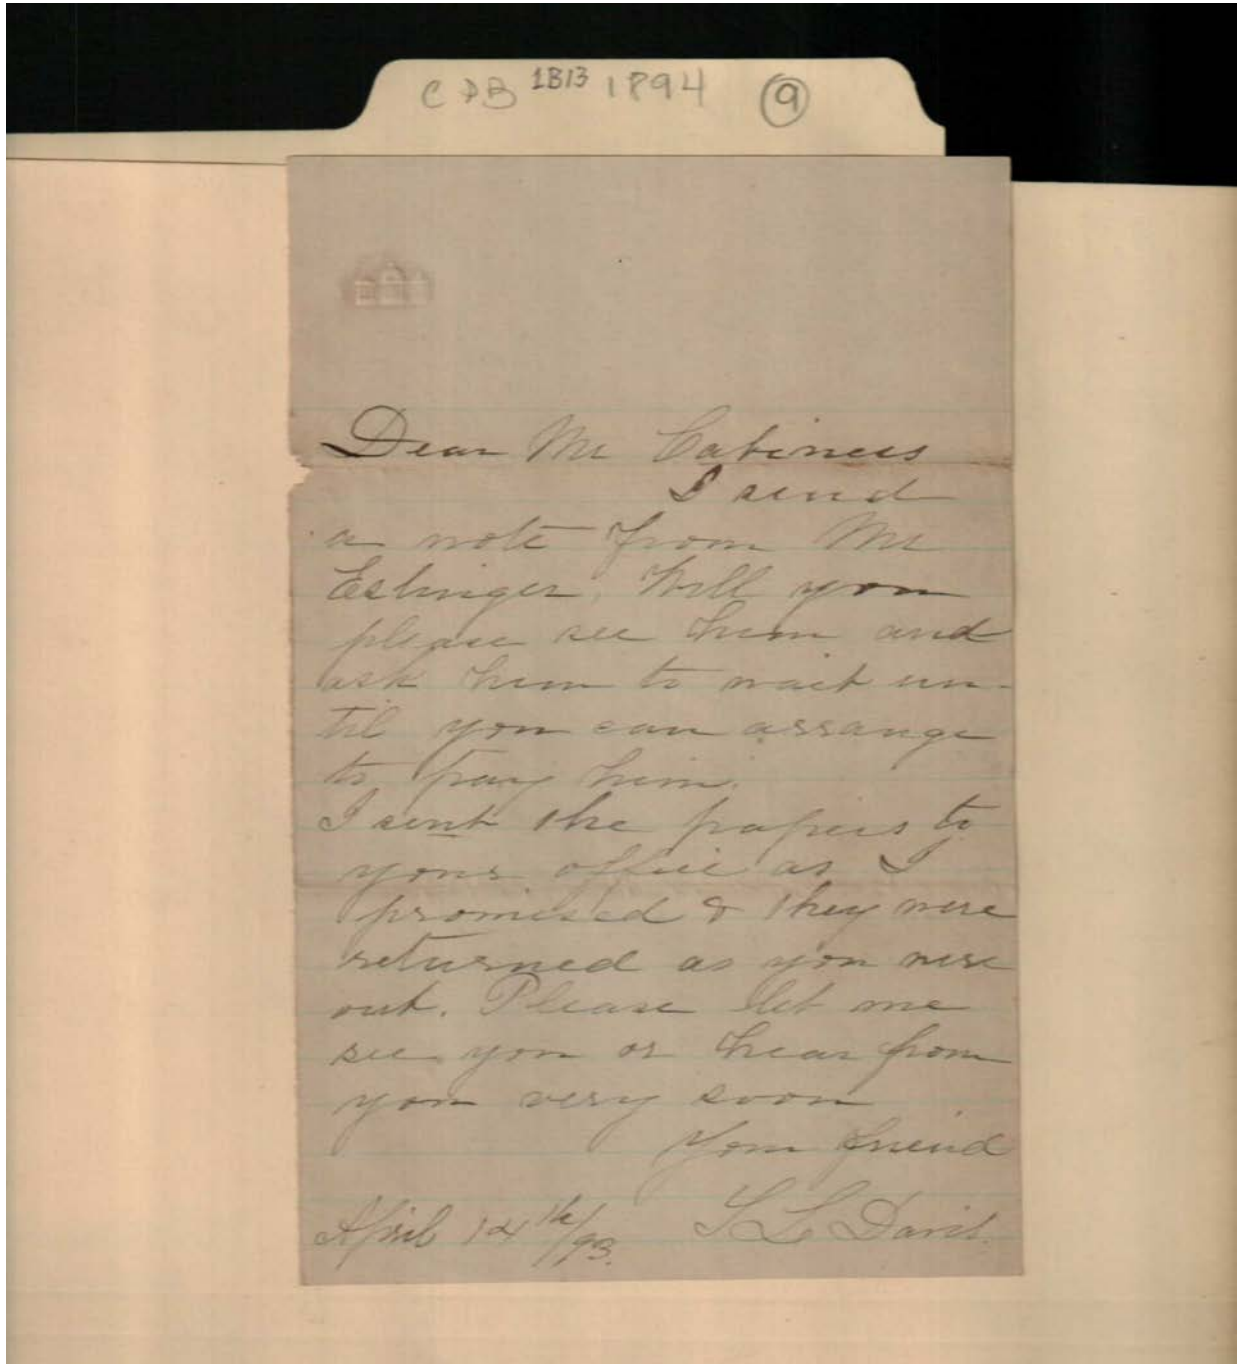 CDB 1B13 1894 9
Dear Mr Cabiness
I send
a note from Mr
Eslinger, Will you
please see him and
ask him to wait un-
til you can arrange
to pay him.
I sent the papers to
your office as I
promised & they were
returned as you were
out. Please let me
see you or hear from
you very soon
Your friend
April 14th/93. S L Davis.